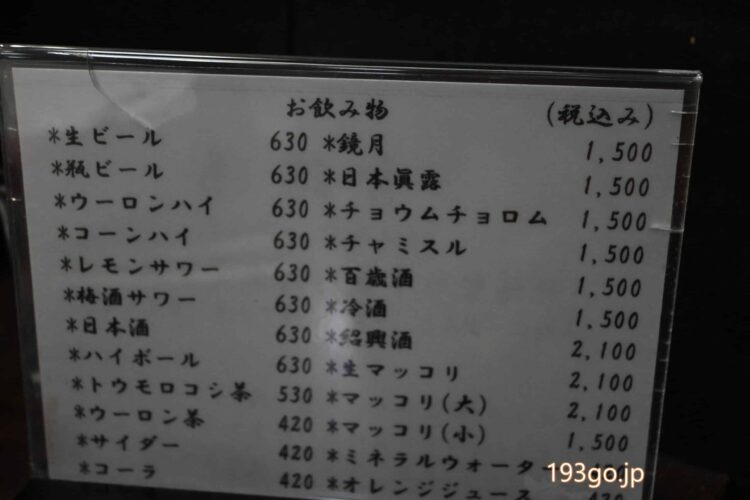 お飲み物 (税込み)
*生ビール 630 *鏡月 1,500
*瓶ビール 630 *日本眞露 1,500
*ウーロンハイ 630 *チョウムチョロム 1,500
*コーンハイ 630 *チャミスル 1,500
*レモンサワー 630 *百歳酒 1,500
*梅酒サワー 630 *冷酒 1,500
*日本酒 630 *紹興酒 2,100
*ハイボール 630 *生マッコリ 2,100
*トウモロコシ茶 530 *マッコリ(大) 2,100
*ウーロン茶 420 *マッコリ(小) 1,500
*サイダー 420 *ミネラルウォーター
*コーラ 420 *オレンジジュース
193go.jp